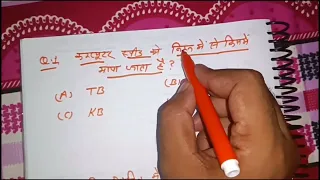 Q.1 कम्प्यूटर स्पीड को निम्न में से किसमें
मापा जाता है ?
(A) TB (B)
(C) KB